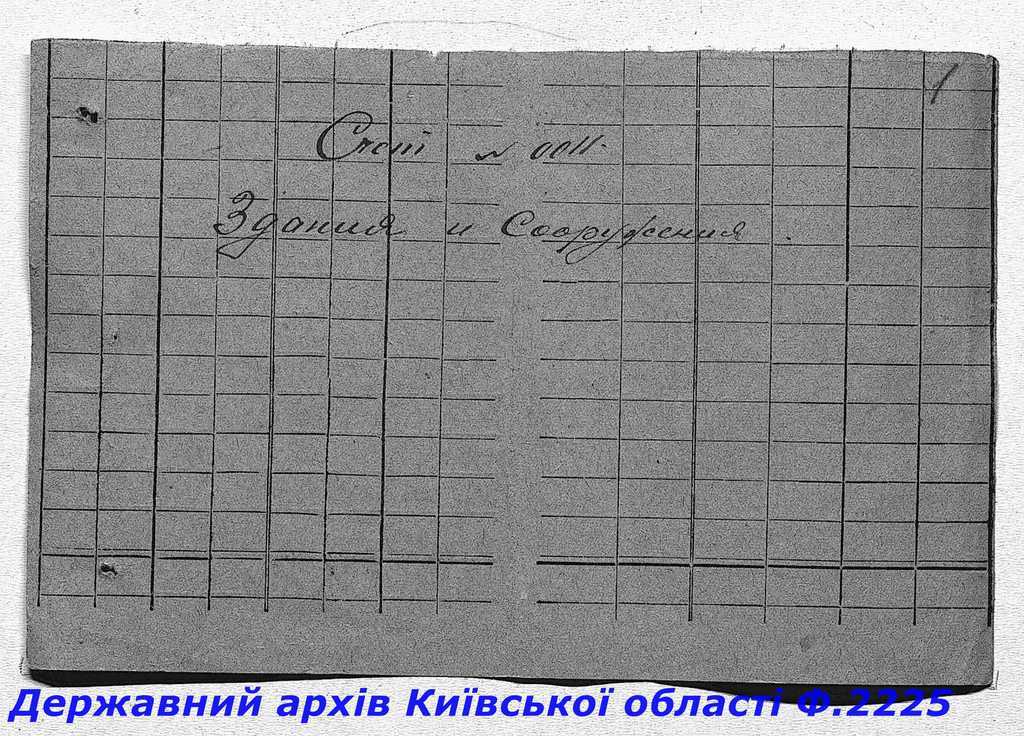 1
Счет № 0011.
Здания и Сооружения.
Державний архів Київської області Ф.2225